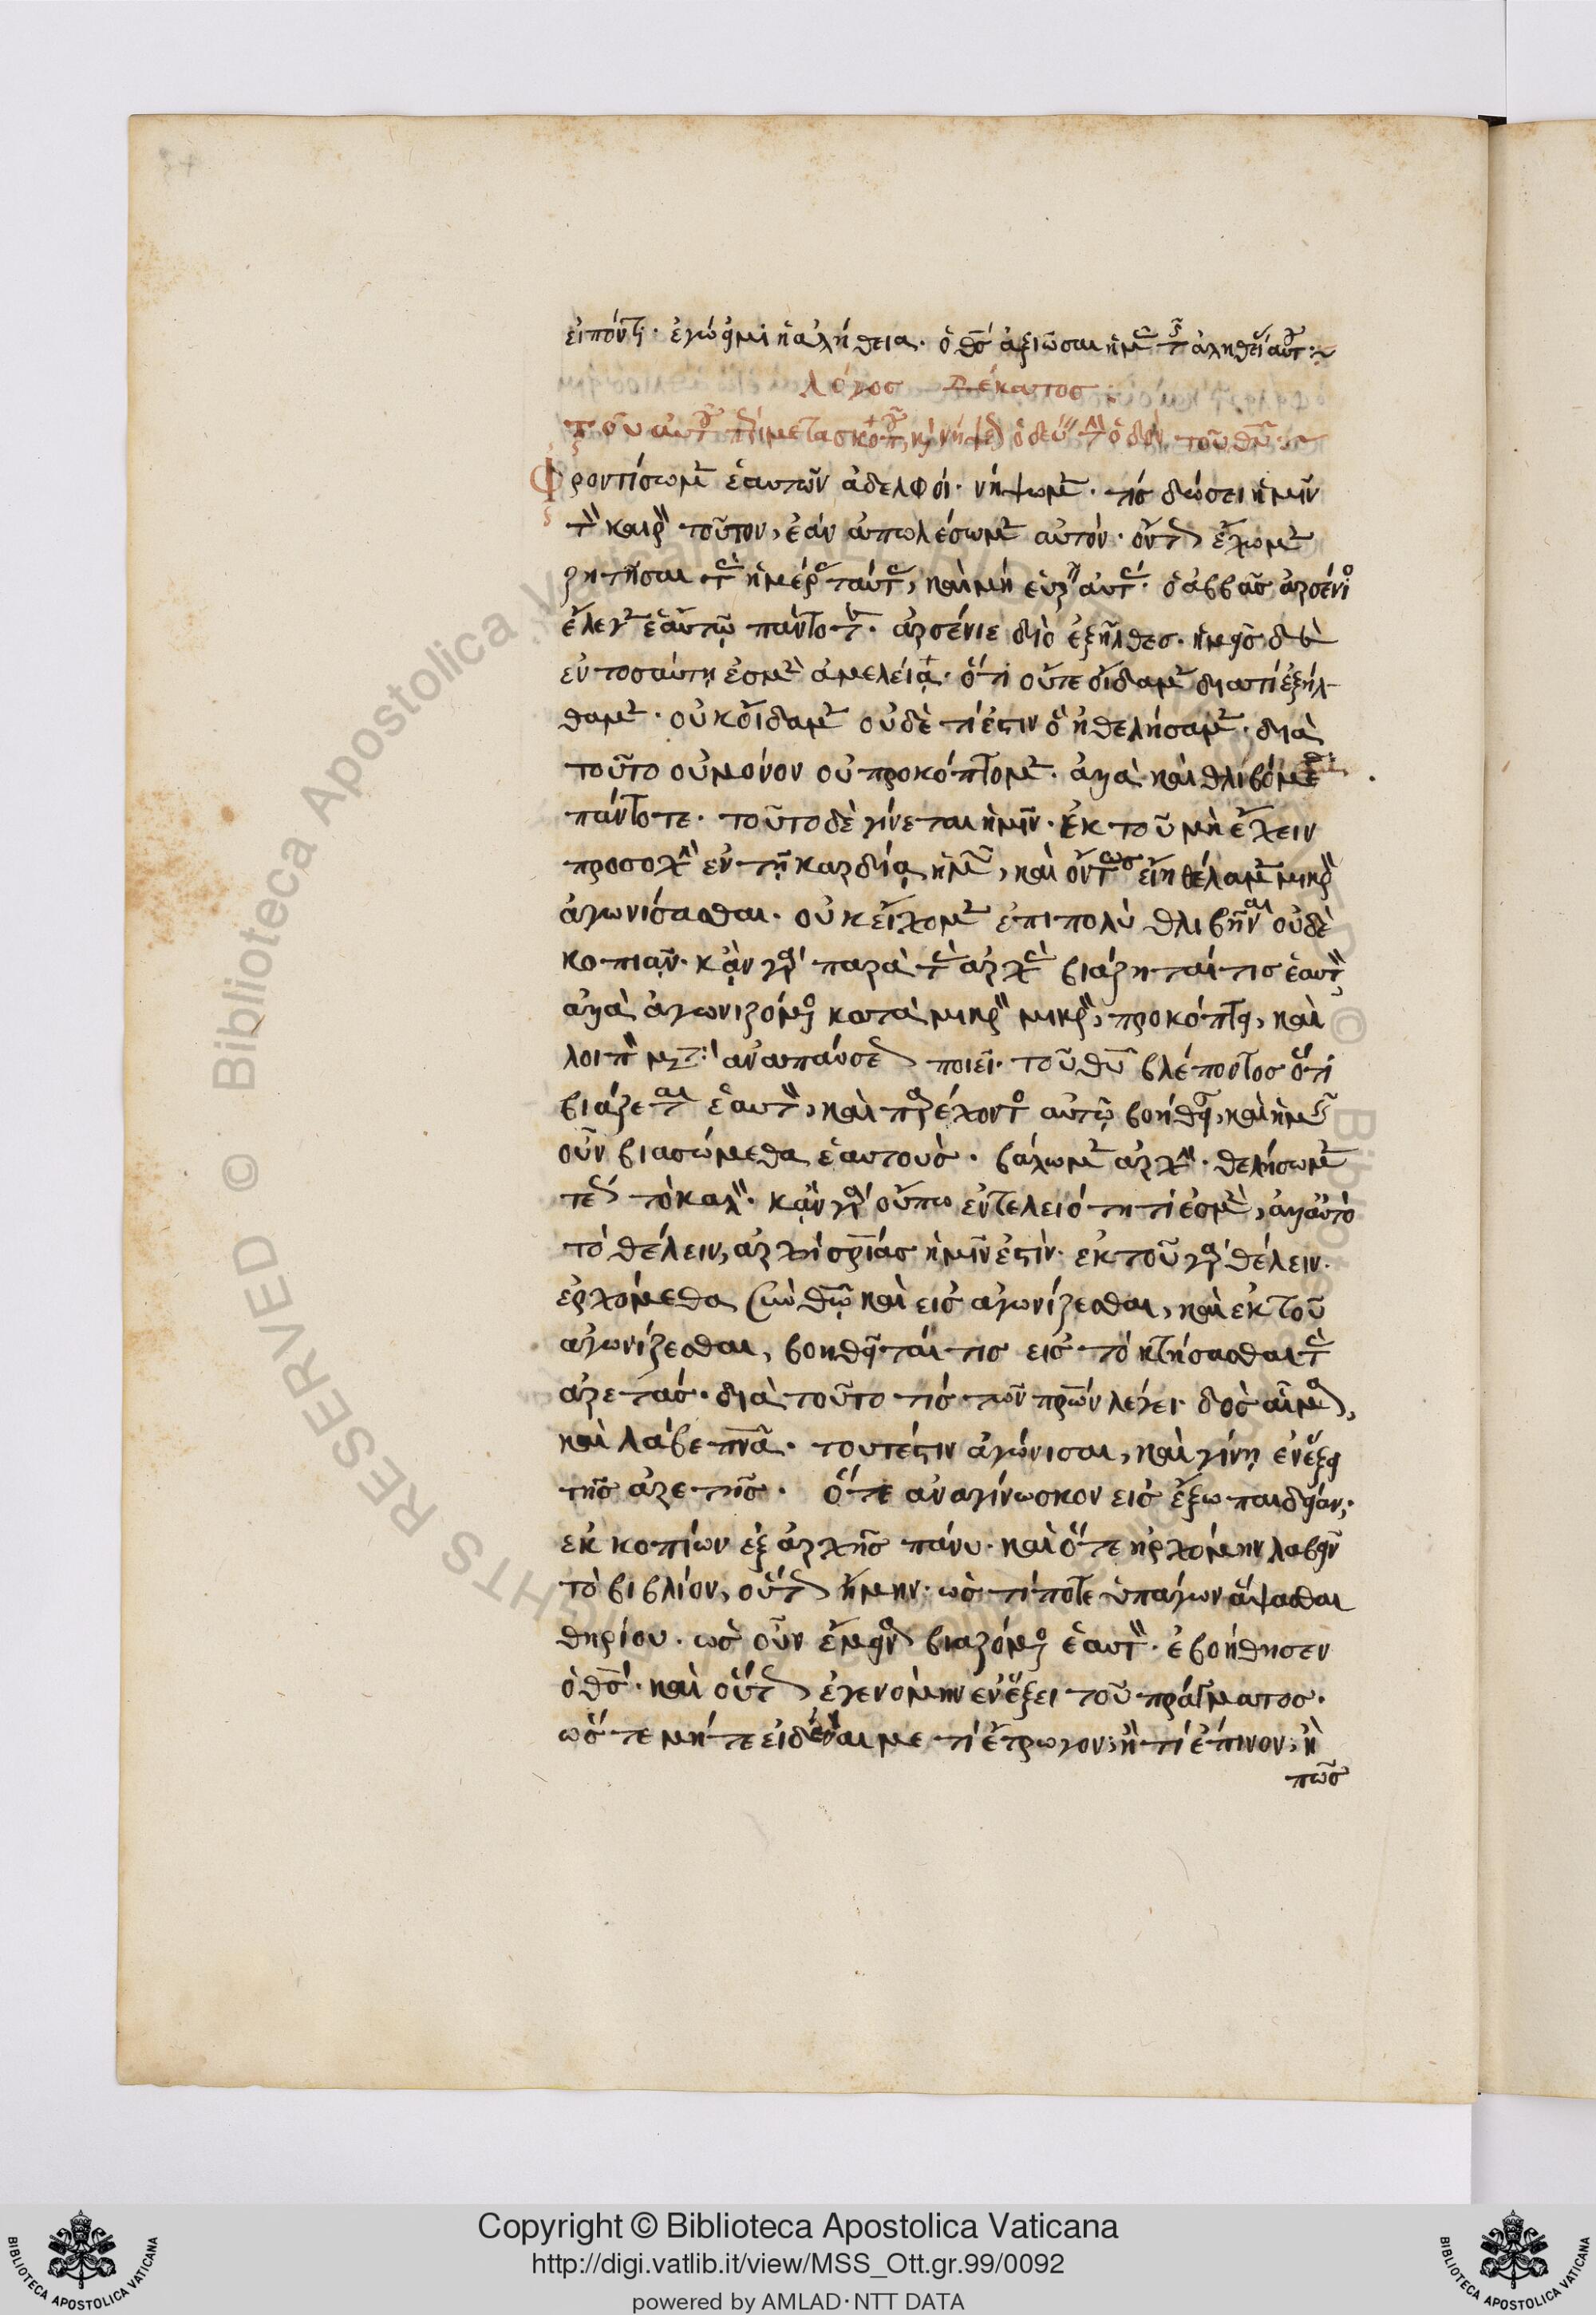 εἰπόντι· ἐγώ εἰμι ἡ ἀλήθεια. ὁ θς ἀξιῶσαι ἡμᾶς τῆς ἀληθείας αὐτοῦ:~
λόγος δέκατος:
τοῦ αὐτοῦ περὶ τοῦ μετὰ σκοποῦ καὶ νήψεως ὁδεύειν τὴν ὁδὸν τοῦ θυ:~
Φροντίσωμεν ἑαυτῶν ἀδελφοί· νήψωμεν· τίς δώσει ἡμῖν
τὸν καιρὸν τοῦτον, ἐὰν ἀπωλέσωμεν αὐτόν· ὄντως ἔχωμεν
ζητῆσαι τὰς ἡμέρας ταύτας, καὶ μὴ εὑρεῖν αὐτάς· ὁ ἀββᾶς ἀρσένιος
ἔλεγεν ἑαυτῷ πάντοτε· ἀρσένιε διὸ ἐξῆλθες· ἡμεῖς δὲ
ἐν τοσαύτῃ ἐσμὲν ἀμελείᾳ· ὅτι οὔτε οἴδαμεν διατί ἐξήλ-
θαμεν· οὐκ οἴδαμεν οὐδὲ τί ἐστιν ὃ ἠθελήσαμεν· διὰ
τοῦτο οὐ μόνον οὐ προκόπτομεν· ἀλλὰ καὶ θλιβόμεθα
πάντοτε· τοῦτο δὲ γίνεται ἡμῖν· ἐκ τοῦ μὴ ἔχειν
προσοχὴν ἐν τῇ καρδίᾳ ἡμῶν, καὶ ὄντως εἰ ἠθέλαμεν μικρὸν
ἀγωνίσασθαι· οὐκ εἴχομεν ἐπιπολὺ θλιβῆναι οὐδὲ
κοπιᾷν· κἂν γὰρ παρὰ τὰς ἀρχὰς βιάζηταί τις ἑαυτὸν,
ἀλλὰ ἀγωνιζόμενος κατὰ μικρὸν μικρὸν, προκόπτει, καὶ
λοιπὸν μετὰ ἀναπαύσεως ποιεῖ· τοῦ θυ βλέποντος ὅτι
βιάζεται ἑαυτὸν, καὶ παρέχοντος αὐτῷ βοήθειαν, καὶ ἡμεῖς
οὖν βιασώμεθα ἑαυτούς· βάλωμεν ἀρχήν· θελήσωμεν
τέως τὸ καλόν· κἂν γὰρ οὔπω ἐν τελειότητί ἐσμεν, ἀλλ' αὐτὸ
τὸ θέλειν, ἀρχὴ σριας ἡμῖν ἐστίν· ἐκ τοῦ γὰρ θέλειν·
ἐρχόμεθα σὺν θω καὶ εἰς ἀγωνίζεσθαι, καὶ ἐκ τοῦ
ἀγωνίζεσθαι, βοηθεῖταί τις εἰς τὸ κτήσασθαι τὰς
ἀρετάς· διὰ τοῦτο τίς τῶν πρων λέγει· δὸς αἷμα,
καὶ λάβε πνα· τουτέστιν ἀγώνισαι, καὶ γίνῃ ἐν ἕξει
τῆς ἀρετῆς· ὅτε ἀναγίνωσκον εἰς ἔξω παιδείαν·
ἐκ κοπίων ἐξ ἀρχῆς πάνυ· καὶ ὅτε ἠρχόμην λαβεῖν
τὸ βιβλίον, οὕτως ἤμην· ὡς τίποτε ὑπάγων ἅψασθαι
θηρίου· ὡς οὖν ἔμεινα βιαζόμενος ἑαυτόν· ἐβοήθησεν
ὁ θς· καὶ οὕτως ἐγενόμην ἐν ἕξει τοῦ πράγματος·
ὥστε μήτε εἰδέναι με τί ἔτρωγον, ἢ τί ἔπινον, ἢ
πῶς
Copyright © Biblioteca Apostolica Vaticana
http://digi.vatlib.it/view/MSS_Ott.gr.99/0092
powered by AMLAD·NTT DATA